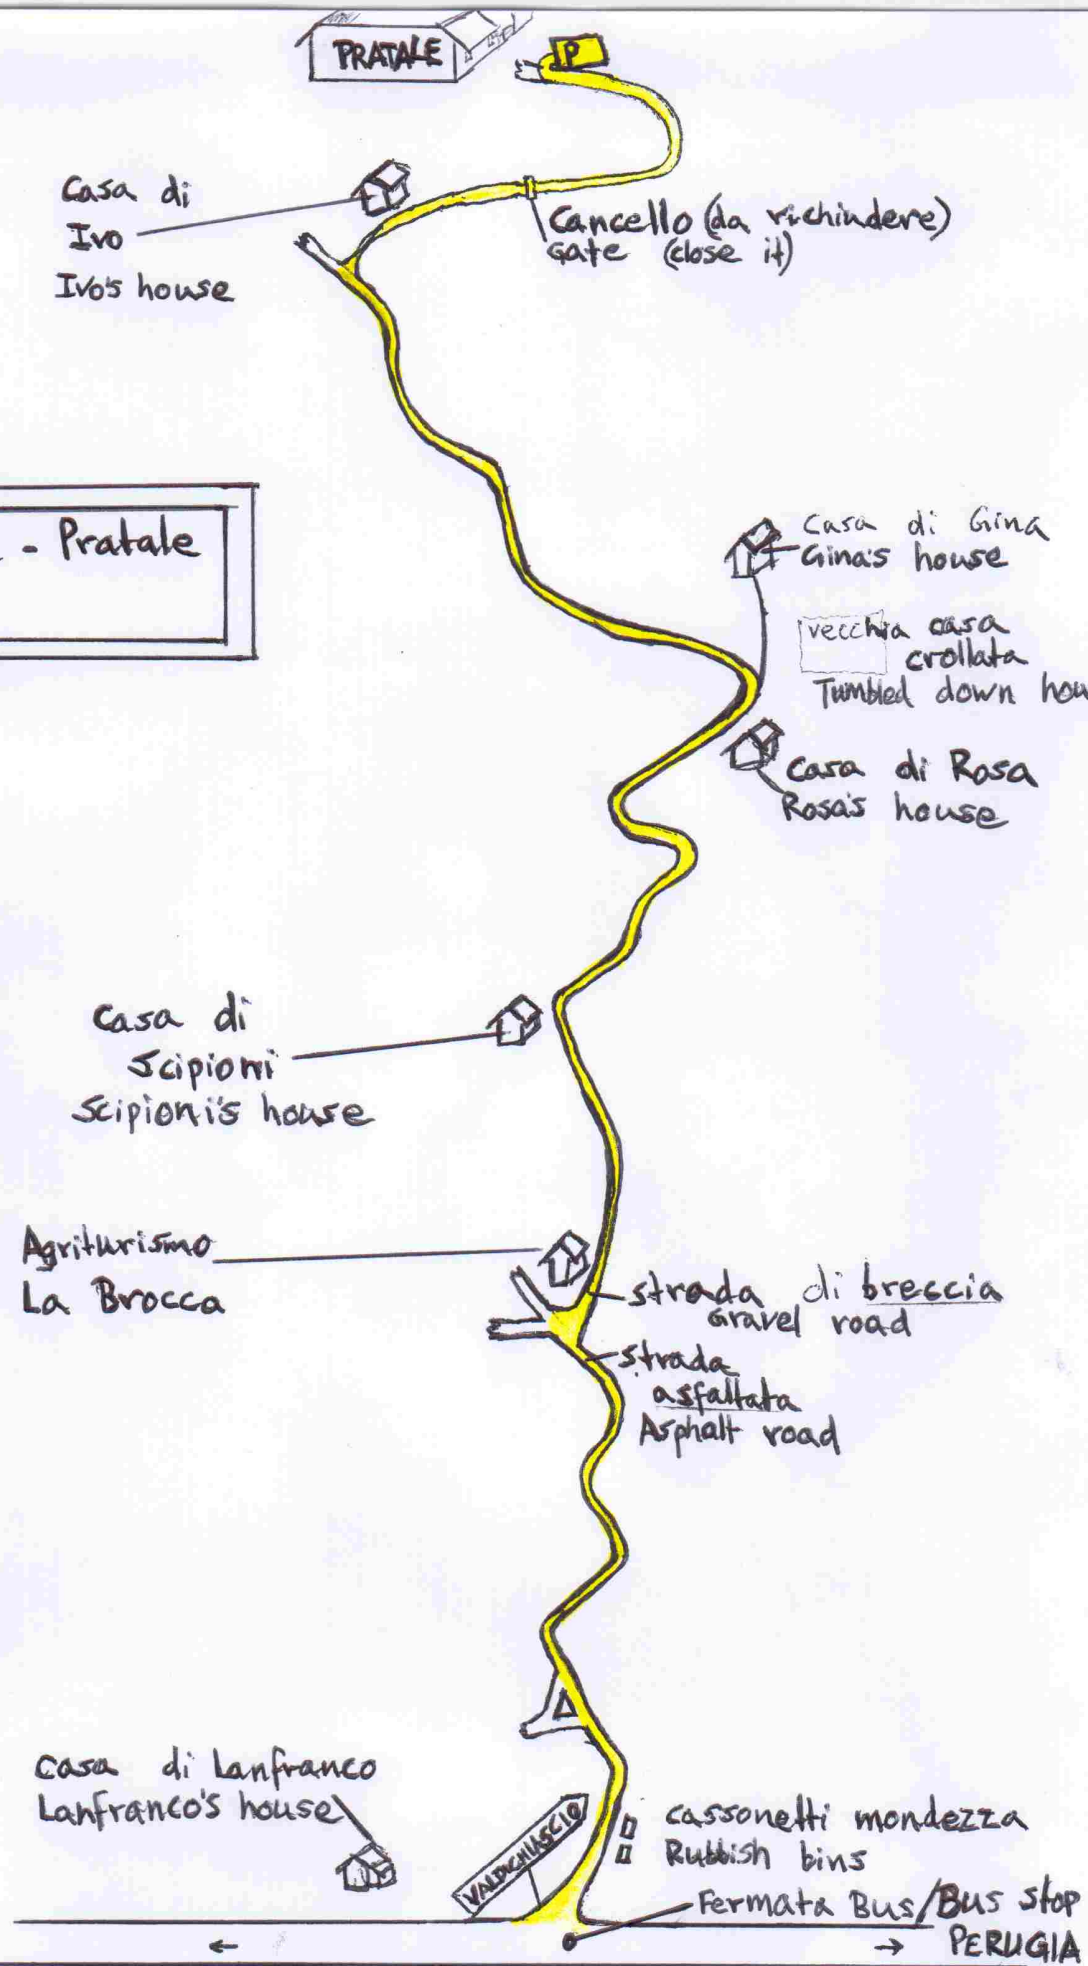 PRATALE
P
Casa di
Ivo
Ivo's house
Cancello (da richindere)
Gate (close it)
- Pratale
Casa di Gina
Gina's house
vecchia casa
crollata
Tumbled down hou
Casa di Rosa
Rosa's house
Casa di
Scipioni
Scipioni's house
Agriturismo
La Brocca
strada di breccia
Gravel road
strada
asfaltata
Asphalt road
casa di Lanfranco
Lanfranco's house
VALDICHIASCIO
cassonetti mondezza
Rubbish bins
Fermata Bus/Bus stop
← → PERUGIA